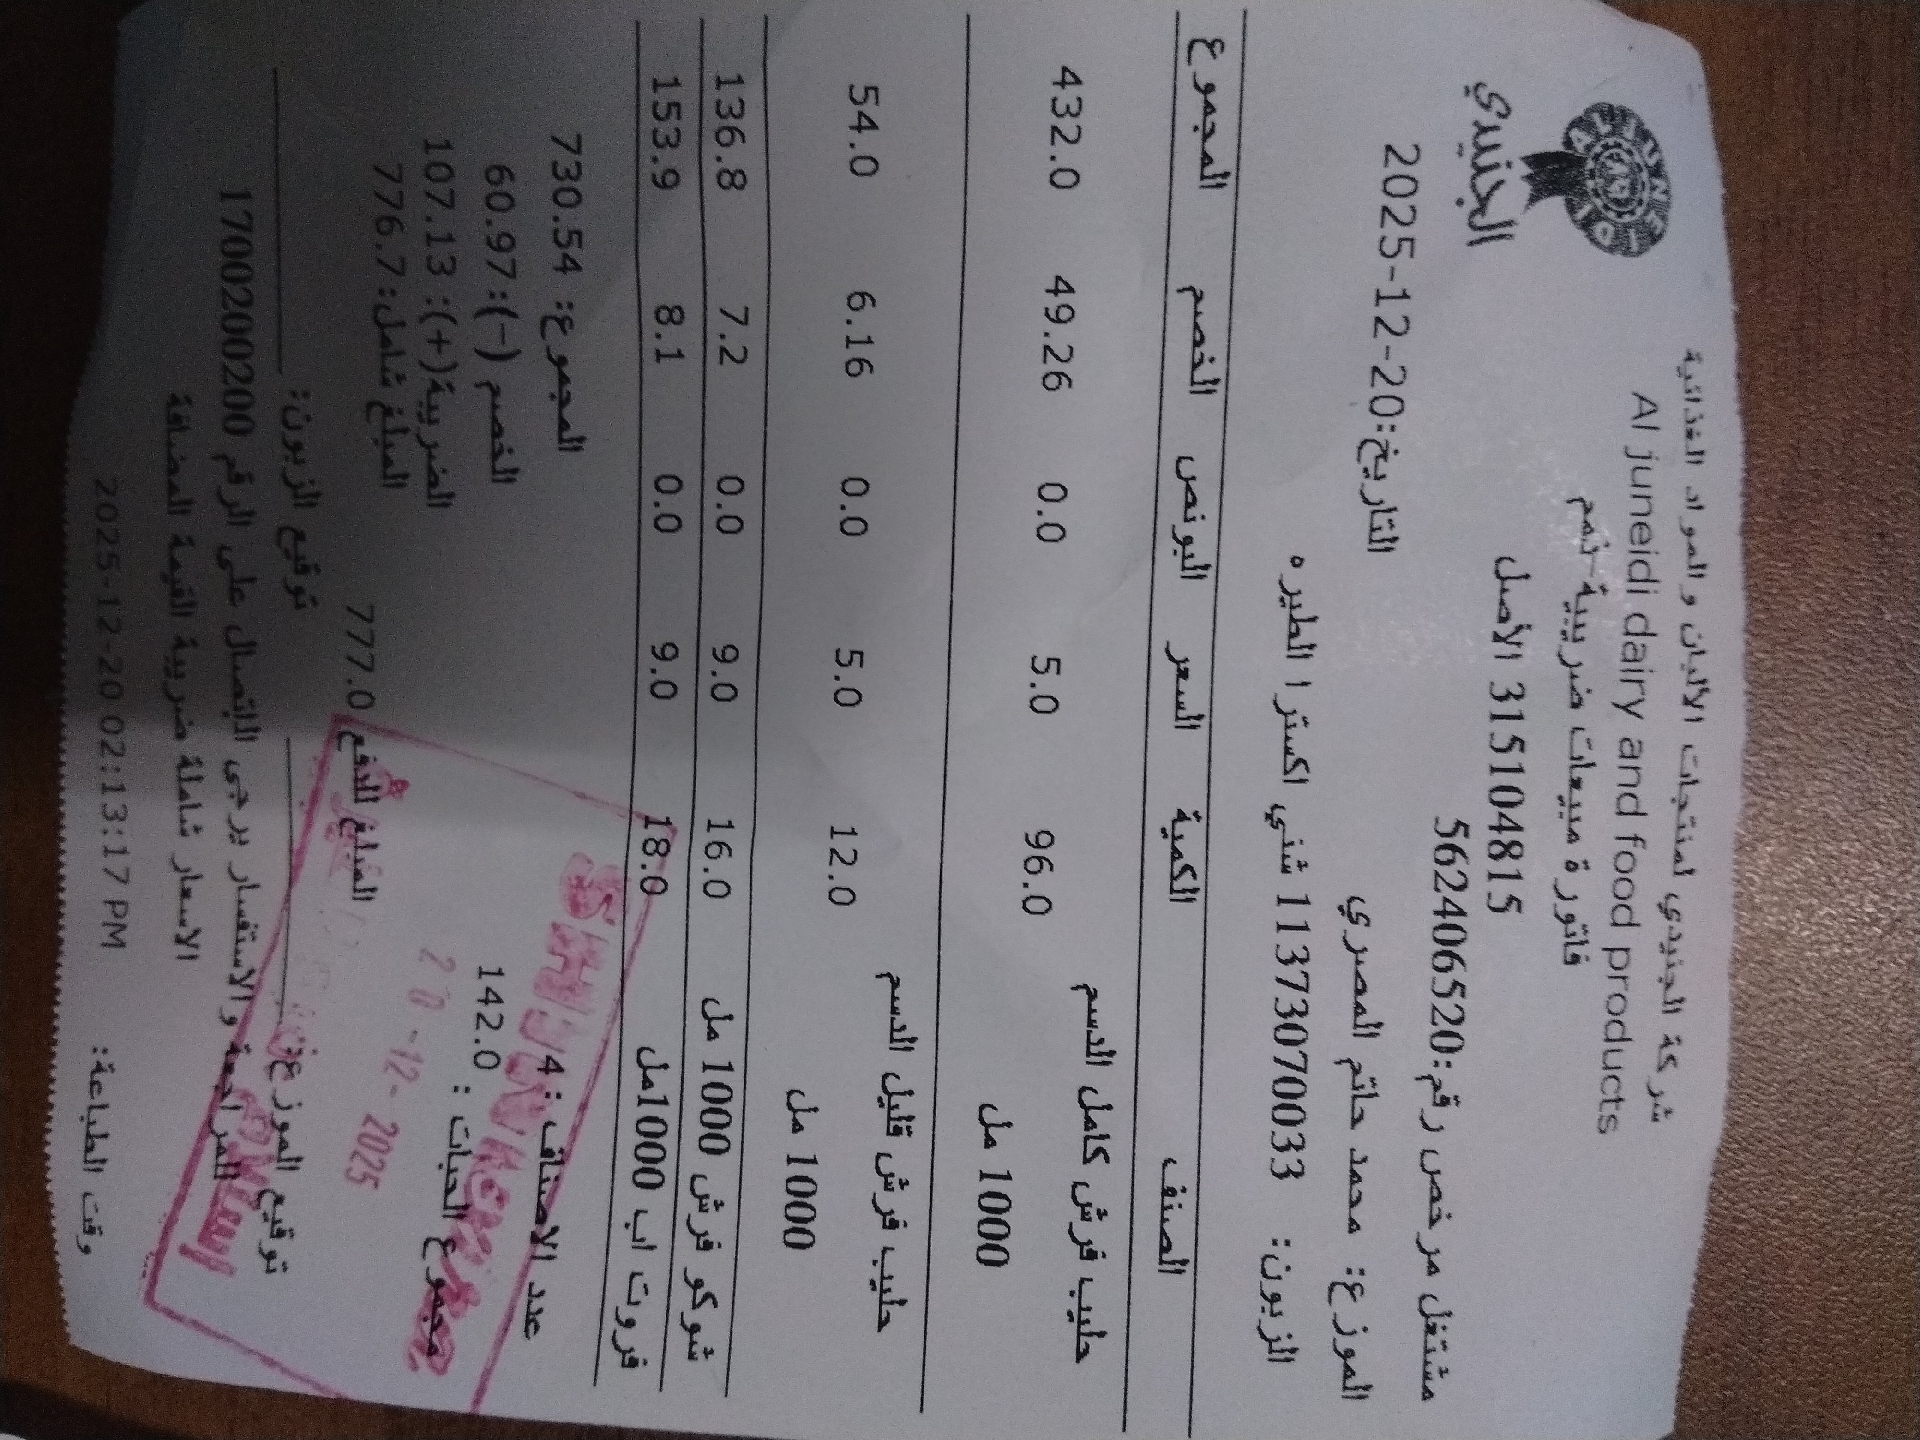 شركة الجنيدي لمنتجات الألبان والمواد الغذائية
Al juneidi dairy and food products
فاتورة مبيعات ضريبية-نهم
الجنيدي
3151048​15 الأصل
مشتغل مرخص رقم:562406520
التاريخ:2025-12-20
الموزع: محمد حاتم المصري
الزبون: 11373070033 شني اكسترا الطيره
الصنف الكمية السعر البونص الخصم المجموع
حليب فرش كامل الدسم
1000 مل
96.0 5.0 0.0 49.26 432.0
حليب فرش قليل الدسم
1000 مل
12.0 5.0 0.0 6.16 54.0
شوكو فرش 1000 مل 16.0 9.0 0.0 7.2 136.8
فروت اب 1000مل 18.0 9.0 0.0 8.1 153.9
عدد الاصناف: 4
المجموع: 730.54
مجموع الحبات : 142.0
الخصم (-): 60.97
الضريبة(+): 107.13
المبلغ شامل: 776.7
المبلغ للدفع 777.0
20-12-2025
توقيع الموزع:
توقيع الزبون:
للمراجعة والاستفسار يرجى الاتصال على الرقم 1700200200
الاسعار شاملة ضريبة القيمة المضافة
وقت الطباعة: 2025-12-20 02:13:17 PM